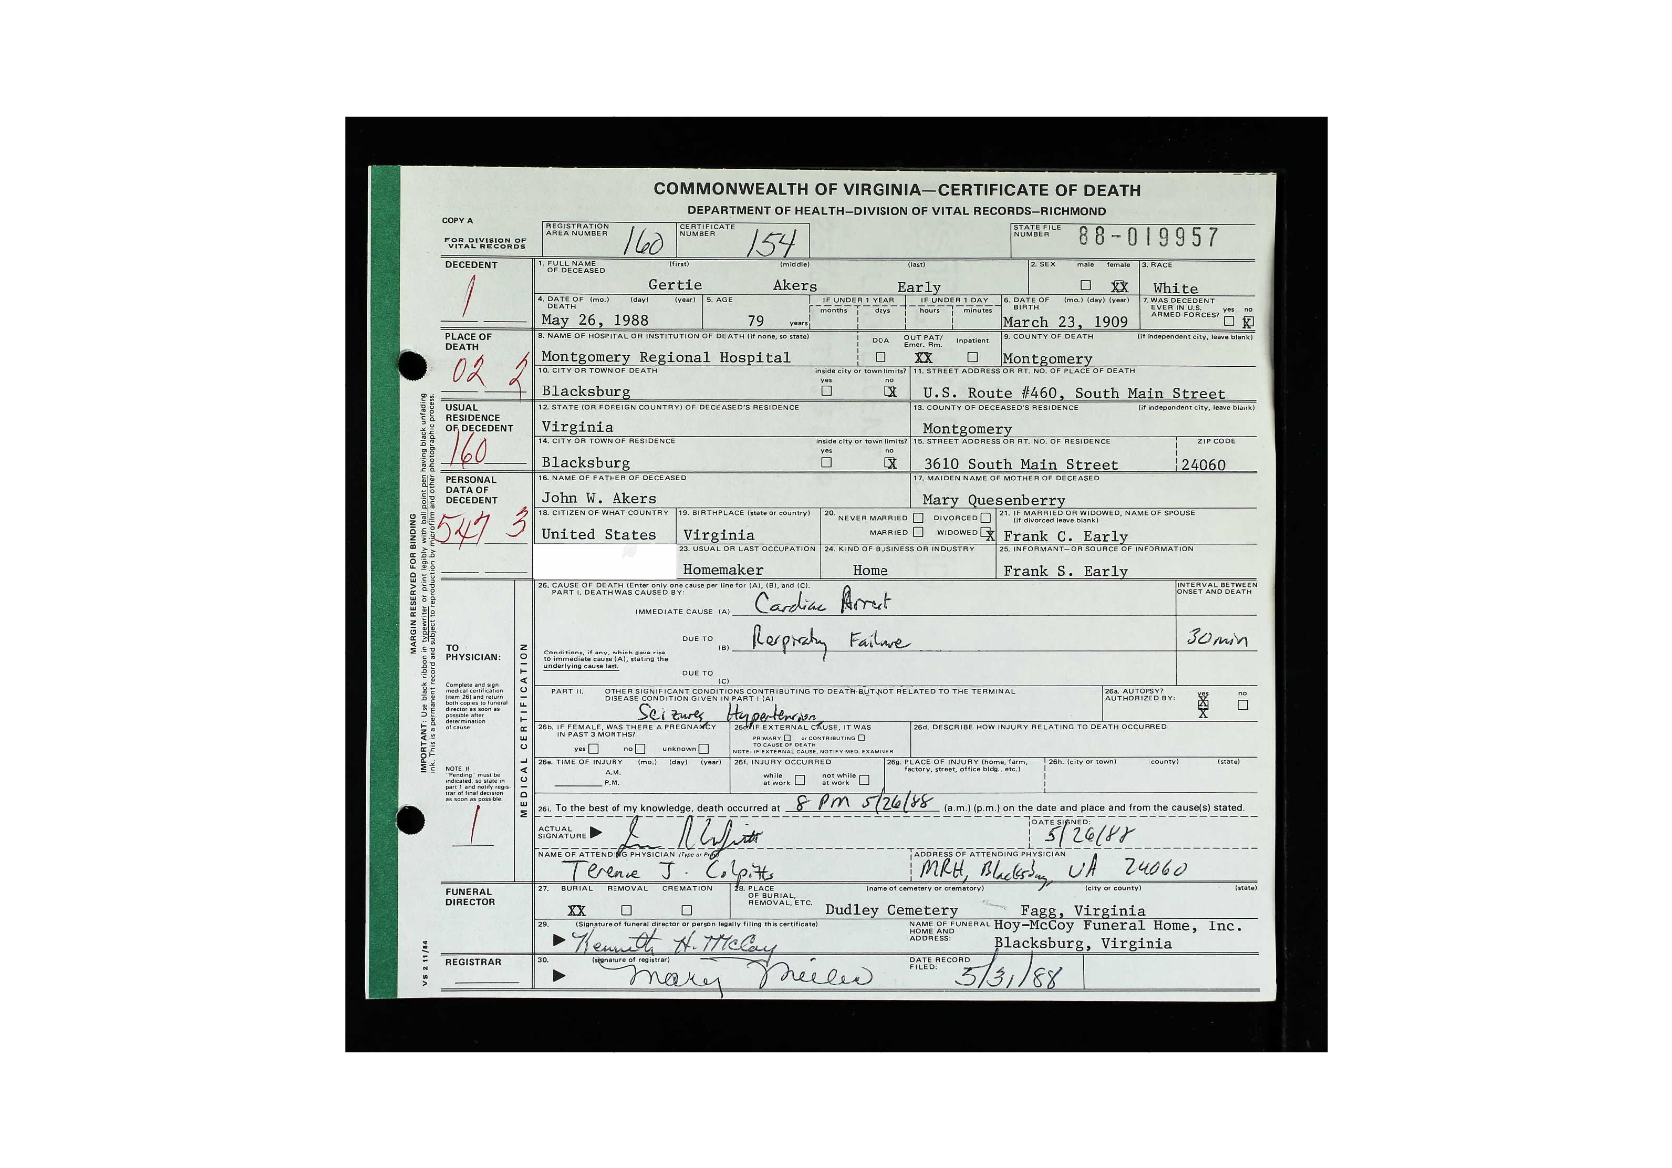 COMMONWEALTH OF VIRGINIA—CERTIFICATE OF DEATH
DEPARTMENT OF HEALTH—DIVISION OF VITAL RECORDS—RICHMOND
COPY A
FOR DIVISION OF VITAL RECORDS
REGISTRATION AREA NUMBER 160
CERTIFICATE NUMBER 154
STATE FILE NUMBER 88-019957
DECEDENT
1
1. FULL NAME OF DECEASED (first) (middle) (last)
Gertie Akers Early
2. SEX male female XX
3. RACE
White
4. DATE OF DEATH (mo.) (day) (year)
May 26, 1988
5. AGE
79 years
IF UNDER 1 YEAR months days
IF UNDER 1 DAY hours minutes
6. DATE OF BIRTH (mo.) (day) (year)
March 23, 1909
7. WAS DECEDENT EVER IN U.S. ARMED FORCES? yes no X
PLACE OF DEATH
02 2
8. NAME OF HOSPITAL OR INSTITUTION OF DEATH (If none, so state)
Montgomery Regional Hospital
DOA OUT PAT/ Emer. Rm. XX Inpatient
9. COUNTY OF DEATH (if independent city, leave blank)
Montgomery
10. CITY OR TOWN OF DEATH
Blacksburg
inside city or town limits? yes no X
11. STREET ADDRESS OR RT. NO. OF PLACE OF DEATH
U.S. Route #460, South Main Street
USUAL RESIDENCE OF DECEDENT
160
12. STATE (OR FOREIGN COUNTRY) OF DECEASED'S RESIDENCE
Virginia
13. COUNTY OF DECEASED'S RESIDENCE (if independent city, leave blank)
Montgomery
14. CITY OR TOWN OF RESIDENCE
Blacksburg
inside city or town limits? yes no X
15. STREET ADDRESS OR RT. NO. OF RESIDENCE
3610 South Main Street
ZIP CODE
24060
PERSONAL DATA OF DECEDENT
547 3
16. NAME OF FATHER OF DECEASED
John W. Akers
17. MAIDEN NAME OF MOTHER OF DECEASED
Mary Quesenberry
18. CITIZEN OF WHAT COUNTRY
United States
19. BIRTHPLACE (state or country)
Virginia
20. NEVER MARRIED DIVORCED
MARRIED WIDOWED X
21. IF MARRIED OR WIDOWED, NAME OF SPOUSE (if divorced leave blank)
Frank C. Early
23. USUAL OR LAST OCCUPATION
Homemaker
24. KIND OF BUSINESS OR INDUSTRY
Home
25. INFORMANT—OR SOURCE OF INFORMATION
Frank S. Early
MARGIN RESERVED FOR BINDING
IMPORTANT: Use black ribbon in typewriter or print legibly with ball point pen having black unfading
ink. This is a permanent record and subject to reproduction by microfilm and other photographic process.
TO PHYSICIAN:
Complete and sign medical certification (item 26) and return both copies to funeral director as soon as possible after determination of cause
NOTE: If "Pending" must be indicated, so state in part I and notify registrar of final decision as soon as possible.
1
MEDICAL CERTIFICATION
26. CAUSE OF DEATH (Enter only one cause per line for (A), (B), and (C).
PART I. DEATH WAS CAUSED BY:
INTERVAL BETWEEN ONSET AND DEATH
IMMEDIATE CAUSE (A) Cardiac Arrest
DUE TO (B) Respiratory Failure 30 min
Conditions, if any, which gave rise to immediate cause (A), stating the underlying cause last.
DUE TO (C)
PART II. OTHER SIGNIFICANT CONDITIONS CONTRIBUTING TO DEATH BUT NOT RELATED TO THE TERMINAL DISEASE CONDITION GIVEN IN PART I (A)
Seizures Hypertension
26a. AUTOPSY? AUTHORIZED BY: yes X X no
26b. IF FEMALE, WAS THERE A PREGNANCY IN PAST 3 MONTHS?
yes no unknown
26c. IF EXTERNAL CAUSE, IT WAS
PRIMARY or CONTRIBUTING TO CAUSE OF DEATH
NOTE: IF EXTERNAL CAUSE, NOTIFY MED. EXAMINER
26d. DESCRIBE HOW INJURY RELATING TO DEATH OCCURRED
26e. TIME OF INJURY (mo.) (day) (year)
A.M.
P.M.
26f. INJURY OCCURRED
while at work not while at work
26g. PLACE OF INJURY (home, farm, factory, street, office bldg., etc.)
26h. (city or town) (county) (state)
26i. To the best of my knowledge, death occurred at 8 PM 5/26/88 (a.m.) (p.m.) on the date and place and from the cause(s) stated.
ACTUAL SIGNATURE
DATE SIGNED:
5/26/88
NAME OF ATTENDING PHYSICIAN (Type or Print)
Terence J. Colpitts
ADDRESS OF ATTENDING PHYSICIAN
MRH, Blacksburg VA 24060
FUNERAL DIRECTOR
27. BURIAL REMOVAL CREMATION
XX
28. PLACE OF BURIAL, REMOVAL, ETC. (name of cemetery or crematory) (city or county) (state)
Dudley Cemetery Fagg, Virginia
29. (Signature of funeral director or person legally filing this certificate)
Kenneth H. McCoy
NAME OF FUNERAL HOME AND ADDRESS:
Hoy-McCoy Funeral Home, Inc.
Blacksburg, Virginia
REGISTRAR
30. (signature of registrar)
Mary
DATE RECORD FILED:
5/31/88
VS 2 11/84